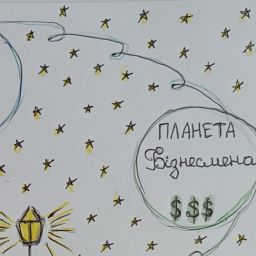 ПЛАНЕТА
Бізнесмена
$$$